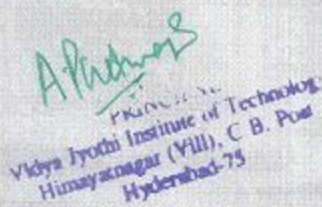 PRINCIPAL
Vidya Jyothi Institute of Technology
Himayatnagar (Vill), C B. Post
Hyderabad-75